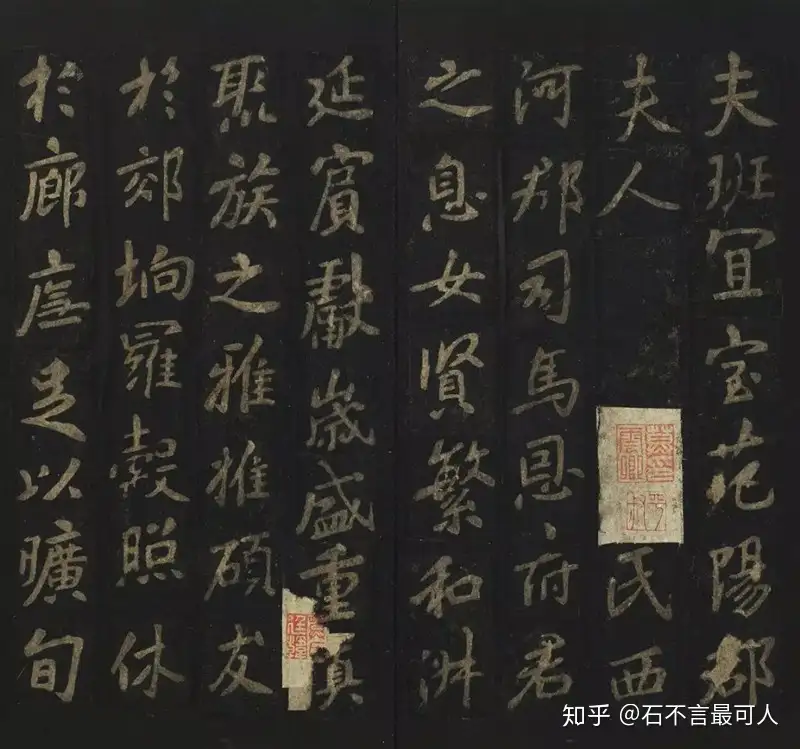 夫班宜室范陽郡
夫人氏西
河郡司馬恩府君
之息女賢繁和淑
延賓獻歲盛重
聚族之雅推碩友
於郊坰羅縠照休
於廊廡足以曠旬
知乎 @石不言最可人